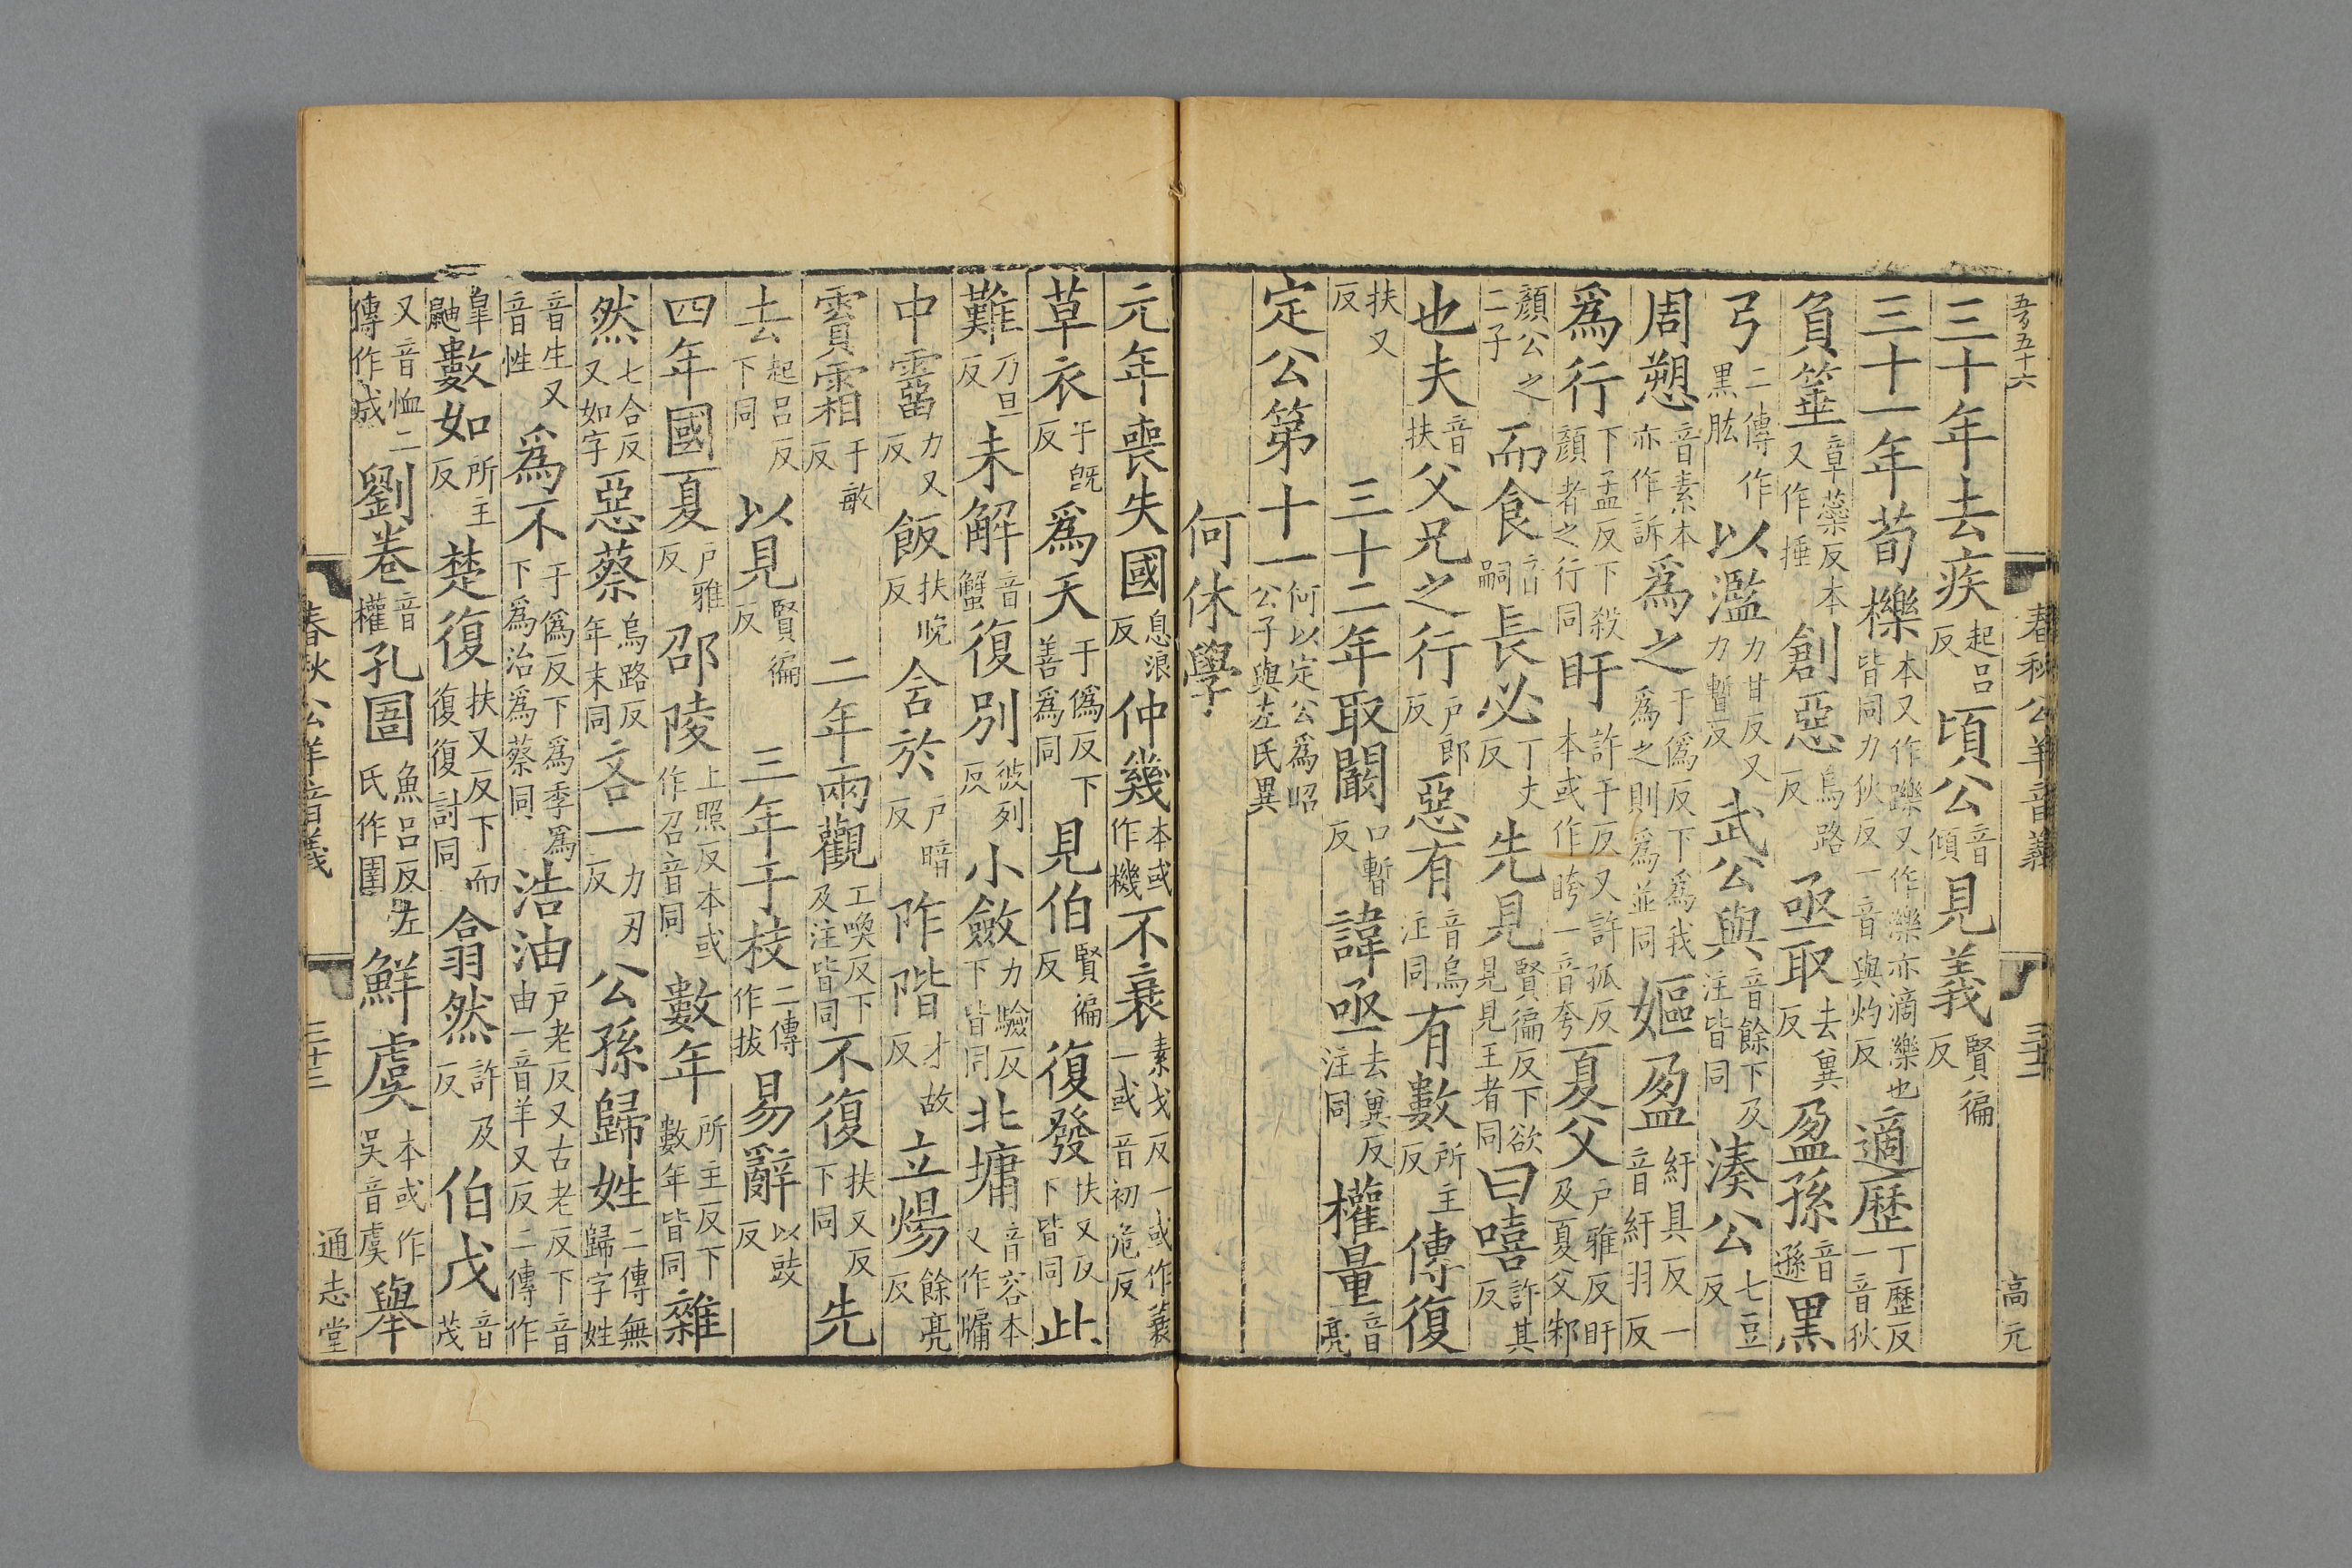 五百五十六
春秋公羊音義
三十二
高元
三十年去疾起呂反頃公音傾見義賢徧反
三十一年荀櫟本又作躒又作濼亦滴樂也皆同力狄反一音與灼反適歷丁歷反一音狄
負箠章蘂反本又作捶創惡烏路反亟取去兾反盈孫音遜黑
弓二傳作黑肱以濫力甘反又力暫反武公與音餘下及注皆同湊公七豆反
周愬音素本亦作訴爲之于僞反下爲我爲之則爲並同嫗盈紆具反一音紆羽反
爲行下孟反下殺顏者之行同盱許于反又許孤反本或作晇一音夸夏父戶雅反盱及夏父邾
顏公之二子而食音嗣長必丁丈反先見賢徧反下欲見見王者同曰嘻許其反
也夫音扶父兄之行戶郎反惡有音烏注同有數所主反傳復
扶又反 三十二年取闞口暫反諱亟去兾反注同權量音亮
定公第十一何以定公爲昭公子與左氏異
何休學
元年喪失國息浪反仲幾本或作機不衰素戈反一或作蓑一或音初危反
草衣于旣反爲天于僞反下善爲同見伯賢徧反復發扶又反下皆同此
難乃旦反未解音蟹復別彼列反小斂力驗反下皆同北墉音容本又作牗
中霤力又反飯扶晚反含於戶暗反阼階才故反立煬餘亮反
賈霜于敏反 二年兩觀工喚反下及注皆同不復扶又反下同先
去起呂反下同以見賢徧反 三年于枝二傳作拔易辭以豉反
四年國夏戶雅反邵陵上照反本或作召音同數年所主反下數年皆同雜
然七合反又如字惡蔡烏路反年末同吝一力刃反公孫歸姓二傳無歸字姓
音生又音性爲不于僞反下爲季爲下爲治爲蔡同浩油戶老反又古老反下音由一音羊又反二傳作
皐鼬數如所主反楚復扶又反下而復復討同翕然許及反伯戊音茂
又音恤二傳作成劉卷音權孔圄魚呂反左氏作圉鮮虞本或作吳音虞舉
春秋公羊音義
三十三
通志堂